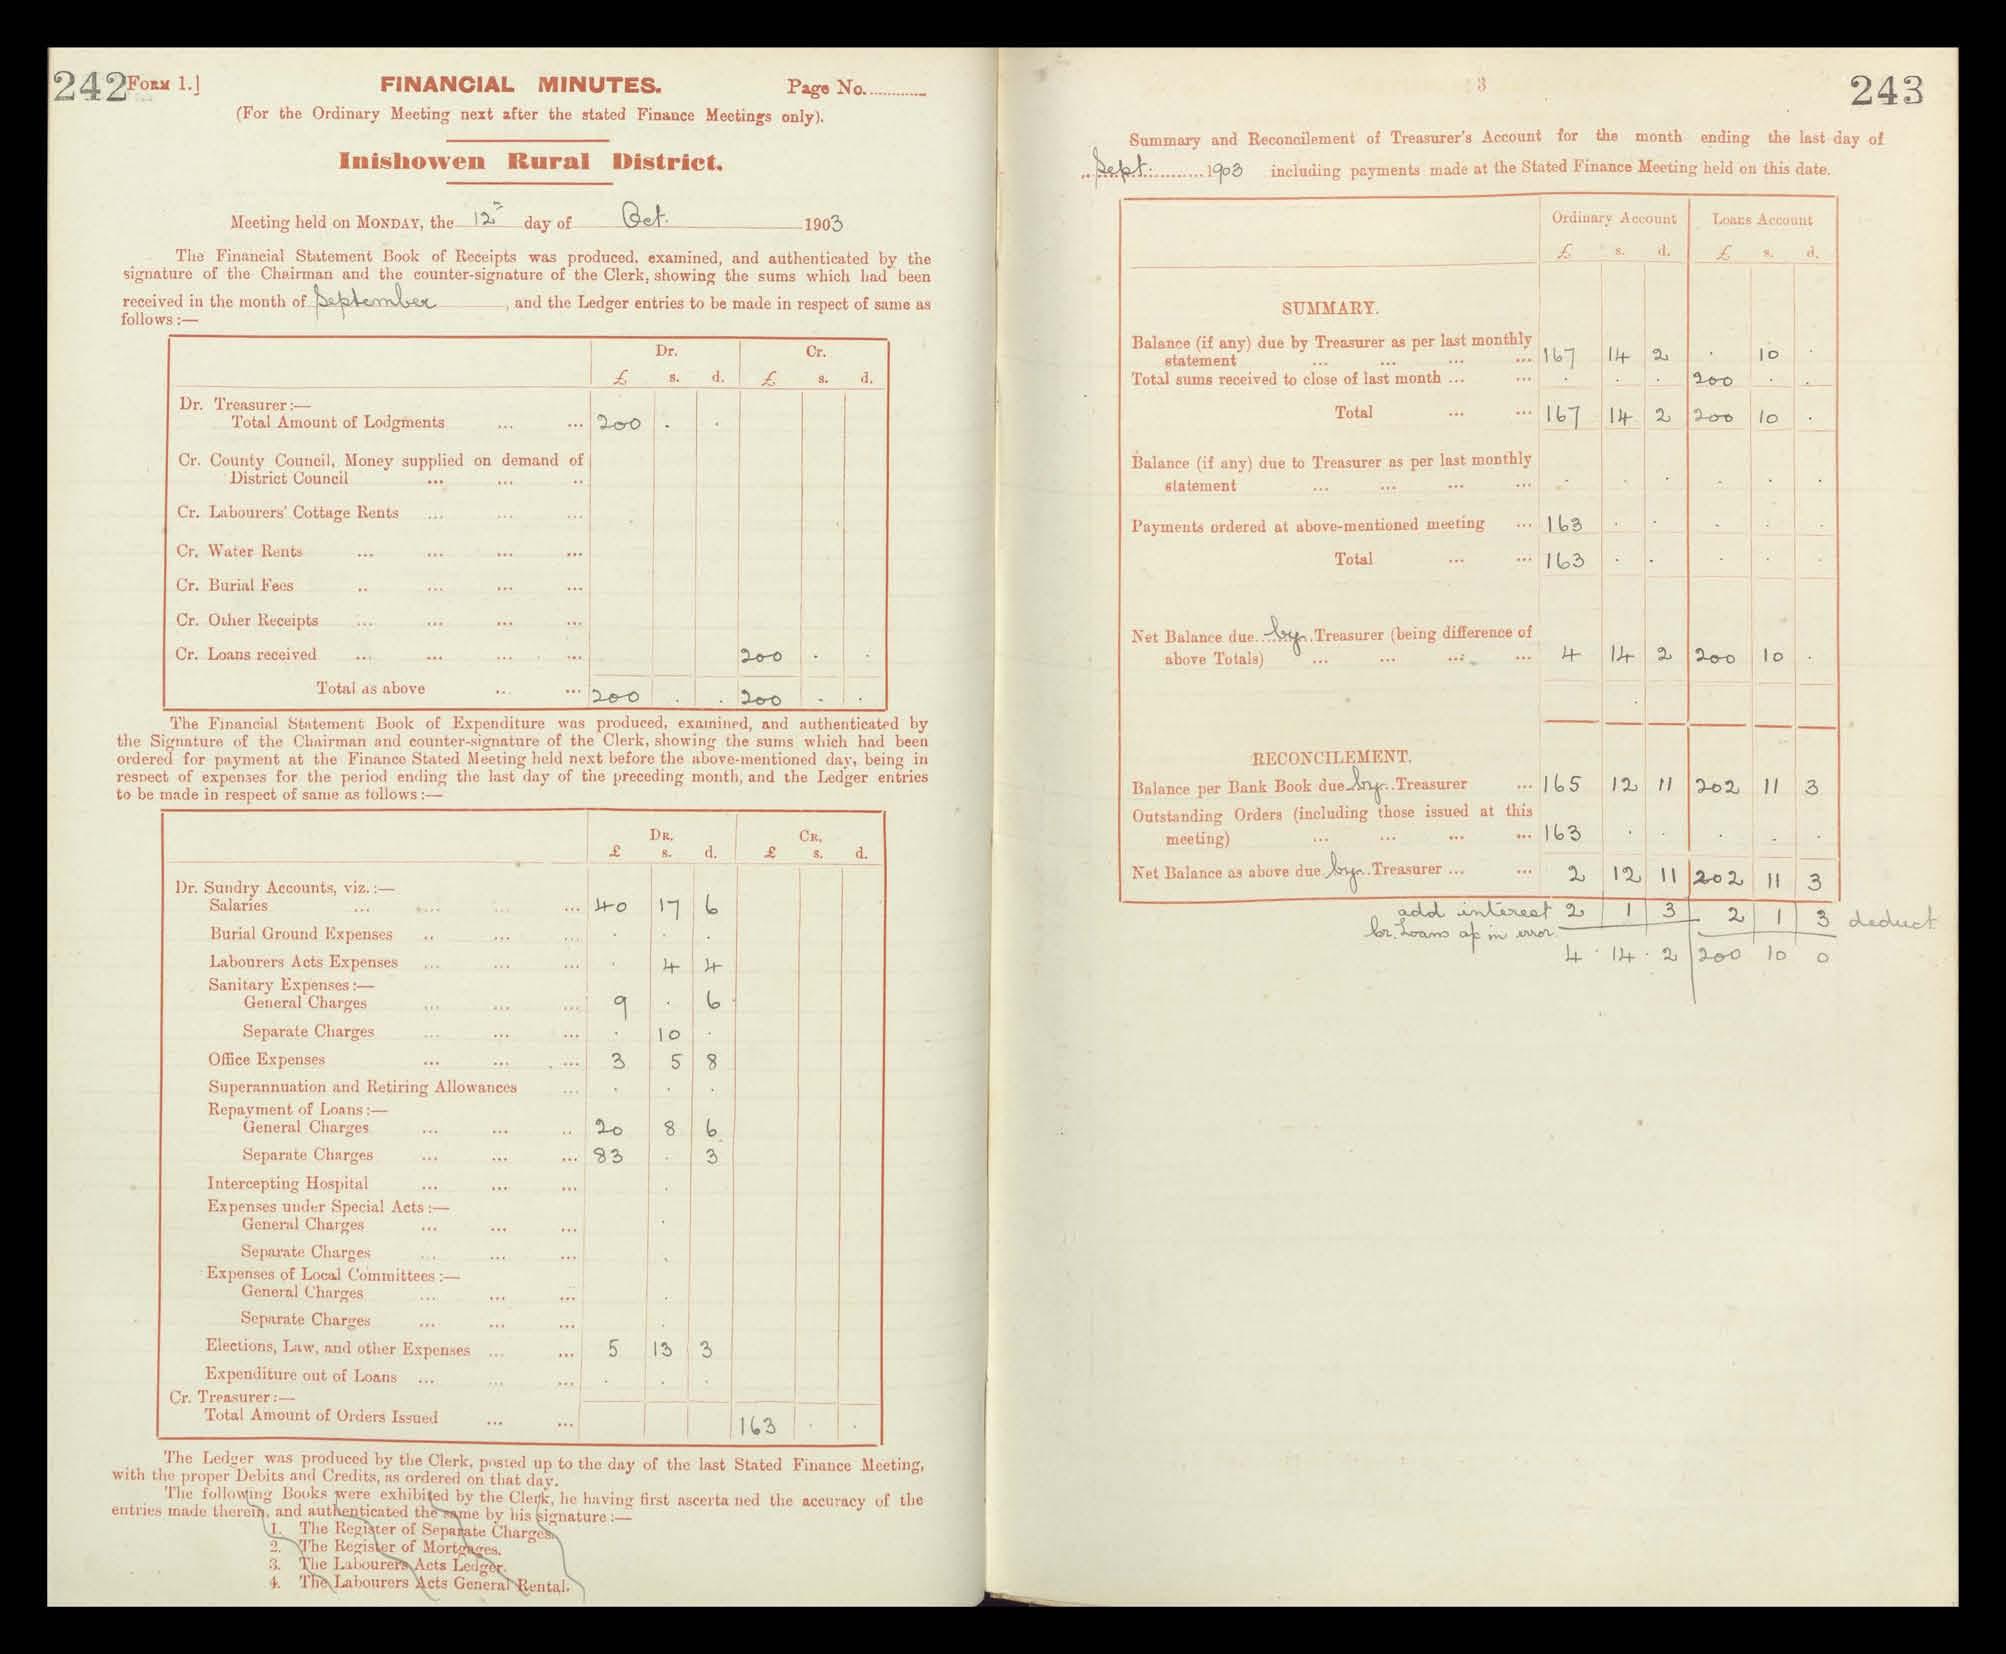 242 FORM 1.] FINANCIAL MINUTES. Page No.............
(For the Ordinary Meeting next after the stated Finance Meetings only).
Inishowen Rural District.
Meeting held on MONDAY, the 12th day of Oct. 1903
The Financial Statement Book of Receipts was produced, examined, and authenticated by the
signature of the Chairman and the counter-signature of the Clerk, showing the sums which had been
received in the month of September, and the Ledger entries to be made in respect of same as
follows :—
Dr. Cr.
£ s. d. £ s. d.
Dr. Treasurer :—
Total Amount of Lodgments ... ... 200 . .
Cr. County Council, Money supplied on demand of
District Council ... ... ..
Cr. Labourers' Cottage Rents ... ... ...
Cr. Water Rents ... ... ... ...
Cr. Burial Fees .. ... ... ...
Cr. Other Receipts ... ... ... ...
Cr. Loans received ... ... ... ... 200 . .
Total as above ... ... 200 . . 200 . .
The Financial Statement Book of Expenditure was produced, examined, and authenticated by
the Signature of the Chairman and counter-signature of the Clerk, showing the sums which had been
ordered for payment at the Finance Stated Meeting held next before the above-mentioned day, being in
respect of expenses for the period ending the last day of the preceding month, and the Ledger entries
to be made in respect of same as follows :—
DR. CR.
£ s. d. £ s. d.
Dr. Sundry Accounts, viz. :—
Salaries ... ... ... ... 40 17 6
Burial Ground Expenses .. ... ... . . .
Labourers Acts Expenses ... ... ... . 4 4
Sanitary Expenses :—
General Charges ... ... ... 9 . 6
Separate Charges ... ... ... . 10 .
Office Expenses ... ... ... 3 5 8
Superannuation and Retiring Allowances ... . . .
Repayment of Loans :—
General Charges ... ... .. 20 8 6
Separate Charges ... ... ... 83 . 3
Intercepting Hospital ... ... ... .
Expenses under Special Acts :—
General Charges ... ... ... .
Separate Charges ... ... ... .
Expenses of Local Committees :—
General Charges ... ... ... .
Separate Charges ... ... ... .
Elections, Law, and other Expenses ... ... 5 13 3
Expenditure out of Loans ... ... ... . . .
Cr. Treasurer :—
Total Amount of Orders Issued ... ... 163 . .
The Ledger was produced by the Clerk, posted up to the day of the last Stated Finance Meeting,
with the proper Debits and Credits, as ordered on that day.
The following Books were exhibited by the Clerk, he having first ascerta ned the accuracy of the
entries made therein, and authenticated the same by his signature :—
1. The Register of Separate Charges.
2. The Register of Mortgages.
3. The Labourers Acts Ledger.
4. The Labourers Acts General Rental.
3 243
Summary and Reconcilement of Treasurer's Account for the month ending the last day of
Sept. 1903 including payments made at the Stated Finance Meeting held on this date.
Ordinary Account Loans Account
£ s. d. £ s. d.
SUMMARY.
Balance (if any) due by Treasurer as per last monthly
statement ... ... ... ... 167 14 2 . 10 .
Total sums received to close of last month ... ... . . . 200 . .
Total ... ... 167 14 2 200 10 .
Balance (if any) due to Treasurer as per last monthly
statement ... ... ... ... . . . . . .
Payments ordered at above-mentioned meeting ... 163 . . . . .
Total ... ... 163 . . . . .
Net Balance due by Treasurer (being difference of
above Totals) ... ... ... ... 4 14 2 200 10 .
RECONCILEMENT.
Balance per Bank Book due by Treasurer ... 165 12 11 202 11 3
Outstanding Orders (including those issued at this
meeting) ... ... ... ... 163 . . . . .
Net Balance as above due by Treasurer ... ... 2 12 11 202 11 3
add interest 2 1 3 2 1 3 deduct
Cr. Loans a/c in error
4 . 14 . 2 200 10 0